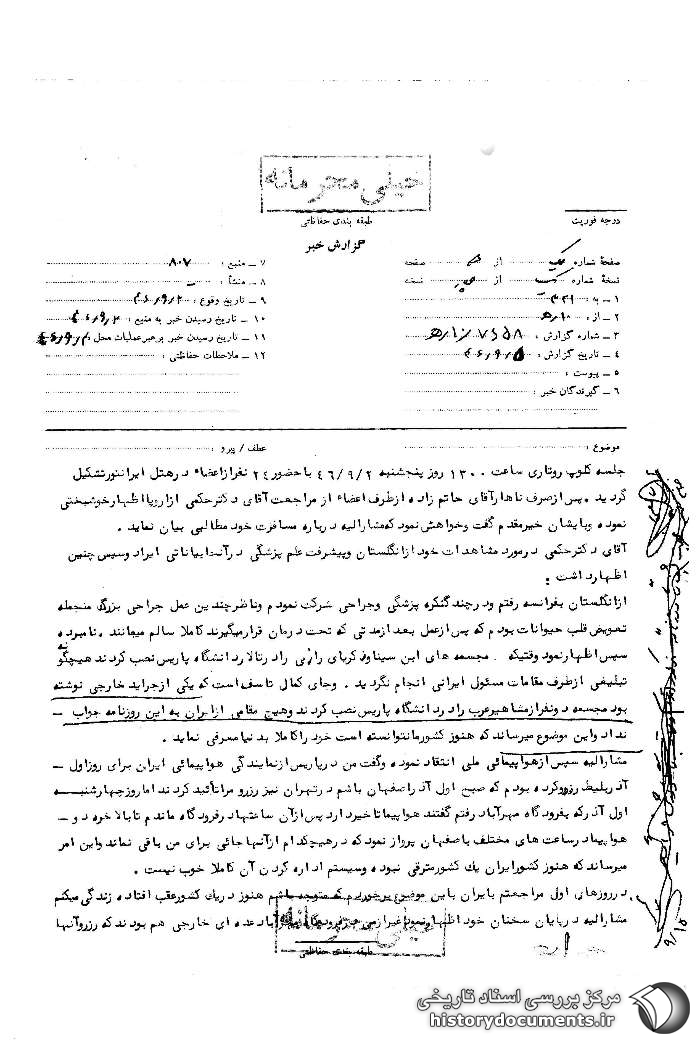 خیلی محرمانه
طبقه بندی حفاظتی
درجه فوریت
گزارش خبر
صفحهٔ شماره یک از صفحه
نسخهٔ شماره از نسخه
۱ ـ به ۳۴۱
۲ ـ از : ۱۰ هـ
۳ ـ شماره گزارش :
۴ ـ تاریخ گزارش : ۴۶/۹/۵
۵ ـ پیوست :
۶ ـ گیرندگان خبر :
۷ ـ منبع : ۸۰۷
۸ ـ منشأ :
۹ ـ تاریخ وقوع : ۴۶/۹/۲
۱۰ ـ تاریخ رسیدن خبر به منبع : ۴۶/۹/۲
۱۱ ـ تاریخ رسیدن خبر برهبر عملیات محل :
۱۲ ـ ملاحظات حفاظتی :
موضوع :
عطف / پیرو :
جلسه کلوپ روتاری ساعت ۱۳۰۰ روز پنجشنبه ۴۶/۹/۲ با حضور ۲۴ نفر از اعضاء در هتل ایرانتور تشکیل
گردید . پس از صرف ناهار آقای حاتم زاده از طرف اعضاء از مراجعت آقای دکتر حکمی از اروپا اظهار خوشبختی
نموده و بایشان خیر مقدم گفت و خواهش نمود که مشارالیه درباره مسافرت خود مطالبی بیان نماید .
آقای دکتر حکمی در مورد مشاهدات خود از انگلستان و پیشرفت علم پزشکی در آنجا بیاناتی ایراد و سپس چنین
اظهار داشت :
از انگلستان بفرانسه رفتم و در چند کنگره پزشکی و جراحی شرکت نمودم و ناظر چندین عمل جراحی بزرگ منجمله
تعویض قلب حیوانات بودم که پس از عمل بعد از مدتی که تحت درمان قرار میگیرند کاملا سالم میمانند . نامبرده
سپس اظهار نمود وقتیکه . مجسمه های ابن سینا و ذکریای رازی را در تالار دانشگاه پاریس نصب کردند هیچگونه
تبلیغی از طرف مقامات مسئول ایرانی انجام نگردید . و جای کمال تاسف است که یکی از جراید خارجی نوشته
بود مجسمه دو نفر از مشاهیر عرب را در دانشگاه پاریس نصب کردند و هیچ مقامی از ایران به این روزنامه جواب ـ
نداد و این موضوع میرساند که هنوز کشور ما نتوانسته است خود را کاملا بدنیا معرفی نماید .
مشارالیه سپس از هواپیمائی ملی انتقاد نموده و گفت من در پاریس از نمایندگی هواپیمائی ایران برای روز اول ـ
آذر بلیط رزرو کرده بودم که صبح اول آذر اصفهان باشم در تهران نیز رزرو مرا تأئید کردند اما روز چهارشنبه
اول آذر که بفرودگاه مهرآباد رفتم گفتند هواپیما تاخیر دارد پس از آن ساعتها در فرودگاه ماندم تا بالاخره دو ـ
هواپیما در ساعت های مختلف باصفهان پرواز نمود که در هیچکدام از آنها جائی برای من باقی نماند و این امر
میرساند که هنوز کشور ایران یك کشور مترقی نبوده و سیستم اداره کردن آن کاملا خوب نیست .
در روزهای اول مراجعتم بایران باین موضوع برخوردم که متوجه باشم هنوز در یك کشور عقب افتاده زندگی میکنم
مشارالیه در پایان سخنان خود اظهار نمود غیر از من در فرودگاه مهرآباد عده ای خارجی هم بودند که رزرو آنها
خیلی محرمانه
طبقه بندی حفاظتی
۹/۱۵
مرکز بررسی اسناد تاریخی
historydocuments.ir